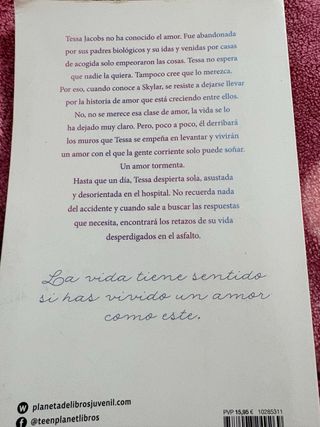 Tessa Jacobs no ha conocido el amor. Fue abandonada
por sus padres biológicos y su idas y venidas por casas
de acogida solo empeoraron las cosas. Tessa no espera
que nadie la quiera. Tampoco cree que lo merezca.
Por eso, cuando conoce a Skylar, se resiste a dejarse llevar
por la historia de amor que está creciendo entre ellos.
No, no se merece esa clase de amor, la vida se lo
ha dejado muy claro. Pero, poco a poco, él derribará
los muros que Tessa se empeña en levantar y vivirán
un amor con el que la gente corriente solo puede soñar.
Un amor tormenta.
Hasta que un día, Tessa despierta sola, asustada
y desorientada en el hospital. No recuerda nada
del accidente y cuando sale a buscar las respuestas
que necesita, encontrará los retazos de su vida
desperdigados en el asfalto.
La vida tiene sentido
si has vivido un amor
como este.
planetadelibrosjuvenil.com
@teenplanetlibros
PVP 15,95 € 10285311